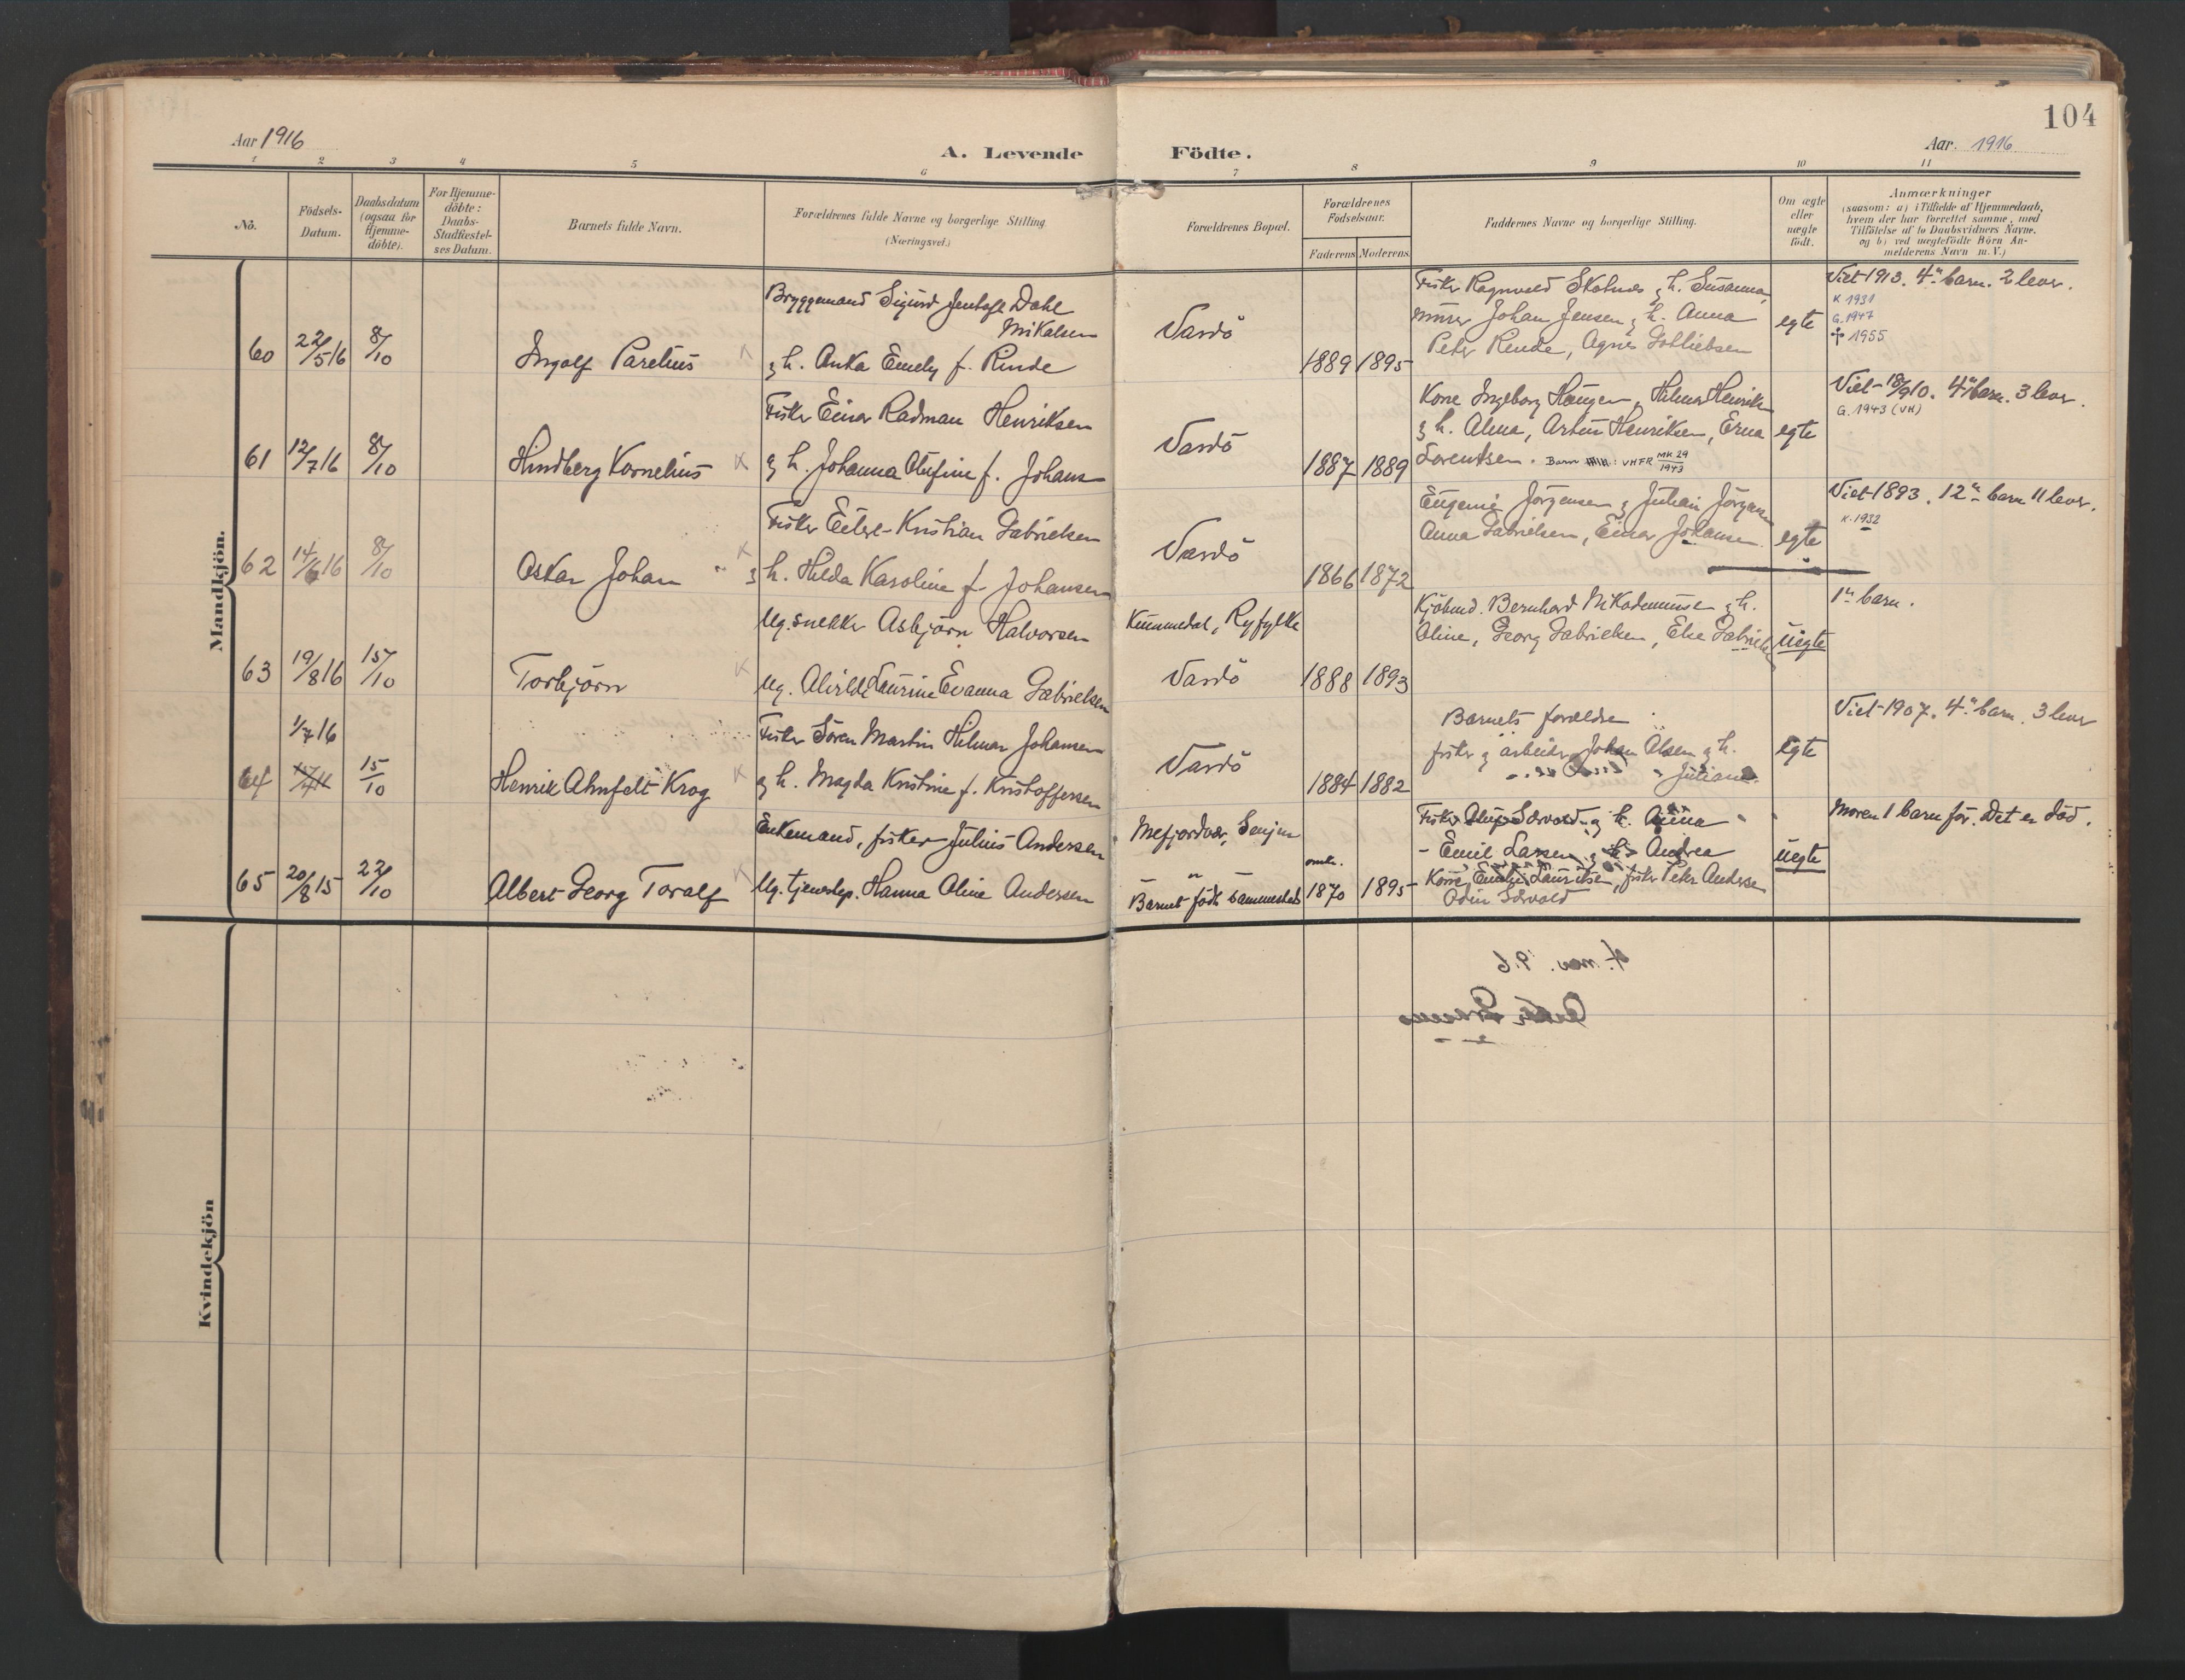 104
Aar 1916
A. Levende Födte.
Aar. 1916
1 2 3 4 5 6 7 8 9 10 11
No.
Födsels-
Datum.
Daabsdatum
(ogsaa for
Hjemme-
döbte).
For Hjemme-
döbte:
Daabs-
Stadfæstel-
ses Datum.
Barnets fulde Navn.
Forældrenes fulde Navne og borgerlige Stilling
(Næringsvei.)
Forældrenes Bopæl.
Forældrenes
Födselsaar.
Faderens Moderens
Faddernes Navne og borgerlige Stilling.
Om ægte
eller
uægte
födt.
Anmærkninger
(saasom: a) i Tilfælde af Hjemmedaab,
hvem der har forrettet samme, med
Tilföielse af to Daabsvidners Navne,
og b) ved uægtefödte Börn An-
melderens Navn m. V.)
Mandkjön.
60
22/5 16
8/10
Ingolf Parelius
Bryggemand Sigurd Jentoft Dahl
Mikalsen
g h. Anka Emely f. Rinde
Vardö
1889 1895
Fisker Ragnvald Skolnes g h. Susanna,
murer Johan Jensen g h. Anna
Peter Rende, Agnes Gotliebsen
egte
Viet 1913. 4de barn. 2 lever.
K 1931
G. 1947
† 1955
61
12/7 16
8/10
Hindberg Kornelius
Fisker Einar Radman Henriksen
g h. Johanna Olufine f. Johans
Vardö
1887 1889
Kone Ingeborg Haugen, Hilmar Henriks
g h. Alma, Artur Henriksen, Erna
Lorentsen. Barn : VHFR MK 29
1943
egte
Viet 18/9 10. 4de barn. 3 lever.
G. 1943 (VH)
62
14/6 16
8/10
Oskar Johan
Fisker Eilert Kristian Gabrielsen
g h. Hilda Karoline f. Johansen
Vardö
1866 1872
Eugenie Jörgensen g Julian Jörgens
Anna Gabrielsen, Einar Johansen.
egte
Viet 1893. 12te barn 11 lever.
K. 1932
63
19/8 16
15/10
Torbjörn
Ug. snekker Asbjörn Halvorsen
Ug. Alvilde Laurine Evanna Gabrielsen
Ryfylke
Vardö
1888 1893
Kjöbmd. Bernhard Nikodemusen g h.
Oline, Georg Gabrielsen, Else Gabrielsen
uegte
1ste barn.
64
1/7 16
15/10
Henrik Ahnfelt Krog
Fisker Sören Martin Hilmar Johansen
g h. Magda Kristine f. Kristoffersen
Vardö
1884 1882
Barnets forældre
fisker g arbeider Johan Olsen g h.
Juliane.
egte
Viet 1907. 4de barn. 3 lever
65
20/8 15
22/10
Albert Georg Toralf
Enkemand, fisker Julius Andersen
Ug. tjenestep. Hanna Oline Andersen
Mefjordvær, Senjen
"
Barnet födt sammesteds
omtr.
1870 1895
Fisker Sörvold g h. Anna
- Emil Larsen g h. Andrea
Kone Emilie Lauritsen, fisker Peter Andersen
Odin Sörvold
uegte
Moren 1 barn för. Det er död.
Kvindekjön